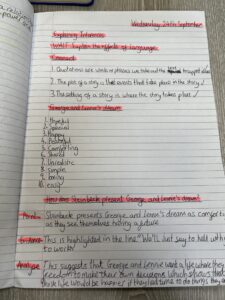 Wednesday 24th September
Exploring Inferences
WALT: Explain the effects of language.
Connect
1. Quotations are words or phrases we take out the text to support ideas
2. The plot of a story is the events that takes place in the story ✓
3. The setting of a story is where the story takes place ✓
George and Lennie's dream
1. Hopeful
2. Special
3. Happy
4. Peaceful
5. Comforting
6. Shared
7. Unrealistic
8. Simple
9.
10. easy
How does Steinbeck present George and Lennie's dream?
Point Steinbeck presents George and Lennie's dream as comforting
as they see themselves having a future
Evidence This is highlighted in the line "We'll just say to hell with
to work"
Analyse This suggests that George and Lennie want a life where they
freedom to make their own decisions which shows that
their life would be happier if they had time to do things they